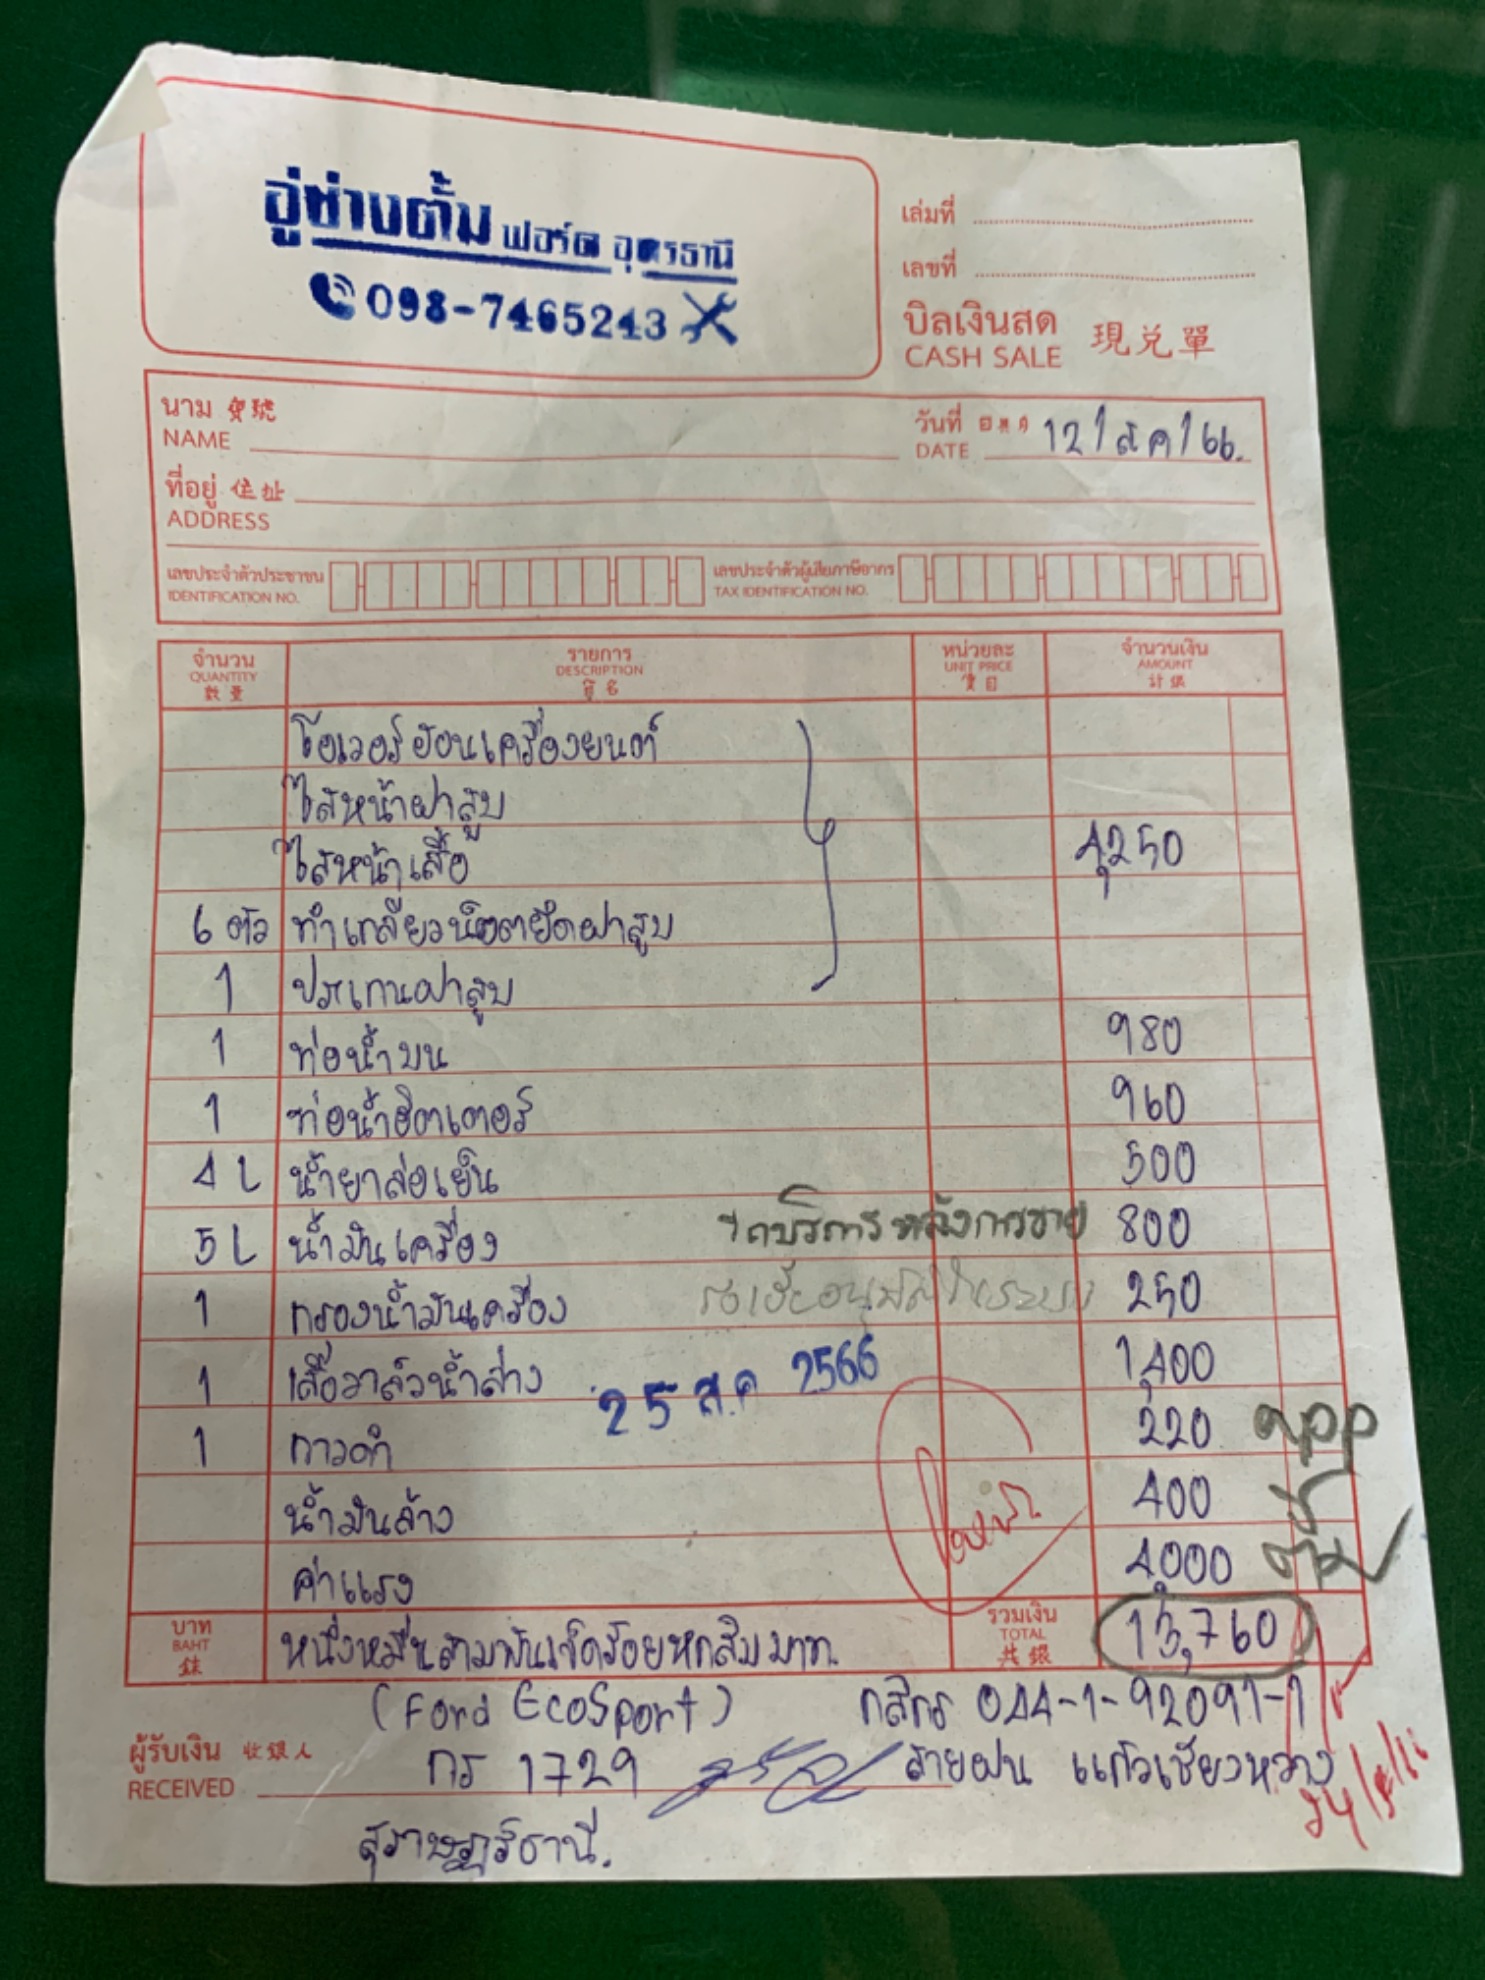 อู่ช่างตั้ม ฟอร์ด อุดรธานี
098-7465243
เล่มที่
เลขที่
บิลเงินสด 現兑單
CASH SALE
นาม
NAME
วันที่ 12/ส.ค/66.
DATE
ที่อยู่ 住址
ADDRESS
เลขประจำตัวประชาชน
IDENTIFICATION NO.
เลขประจำตัวผู้เสียภาษีอากร
TAX IDENTIFICATION NO.
จำนวน รายการ หน่วยละ จำนวนเงิน
QUANTITY DESCRIPTION UNIT PRICE AMOUNT
โอเวอร์ฮอนเครื่องยนต์
ไสหน้าฝาสูบ
ไสหน้าเสื้อ 4,250
6 ตัว ทำเกลียวน็อตยึดฝาสูบ
1 ประเกนฝาสูบ
1 ท่อน้ำบน 980
1 ท่อน้ำฮิตเตอร์ 960
4 L น้ำยาล่อเย็น 500
5 L น้ำมันเครื่อง รถบริการหลังการขาย 800
1 กรองน้ำมันเครื่อง 250
1 เสื้อวาล์วน้ำล่าง 1,400
25 ส.ค 2566
1 กาวดำ 220
น้ำมันล้าง 400
ค่าแรง 4,000
บาท หนึ่งหมื่นสามพันเจ็ดร้อยหกสิบบาท. รวมเงิน 13,760
BAHT TOTAL
(Ford EcoSport) กสิกร 044-1-92091-1
ผู้รับเงิน 收銀人 กร 1729 สายฝน แก้วเชียงหวาง
RECEIVED
สุราษฎร์ธานี.